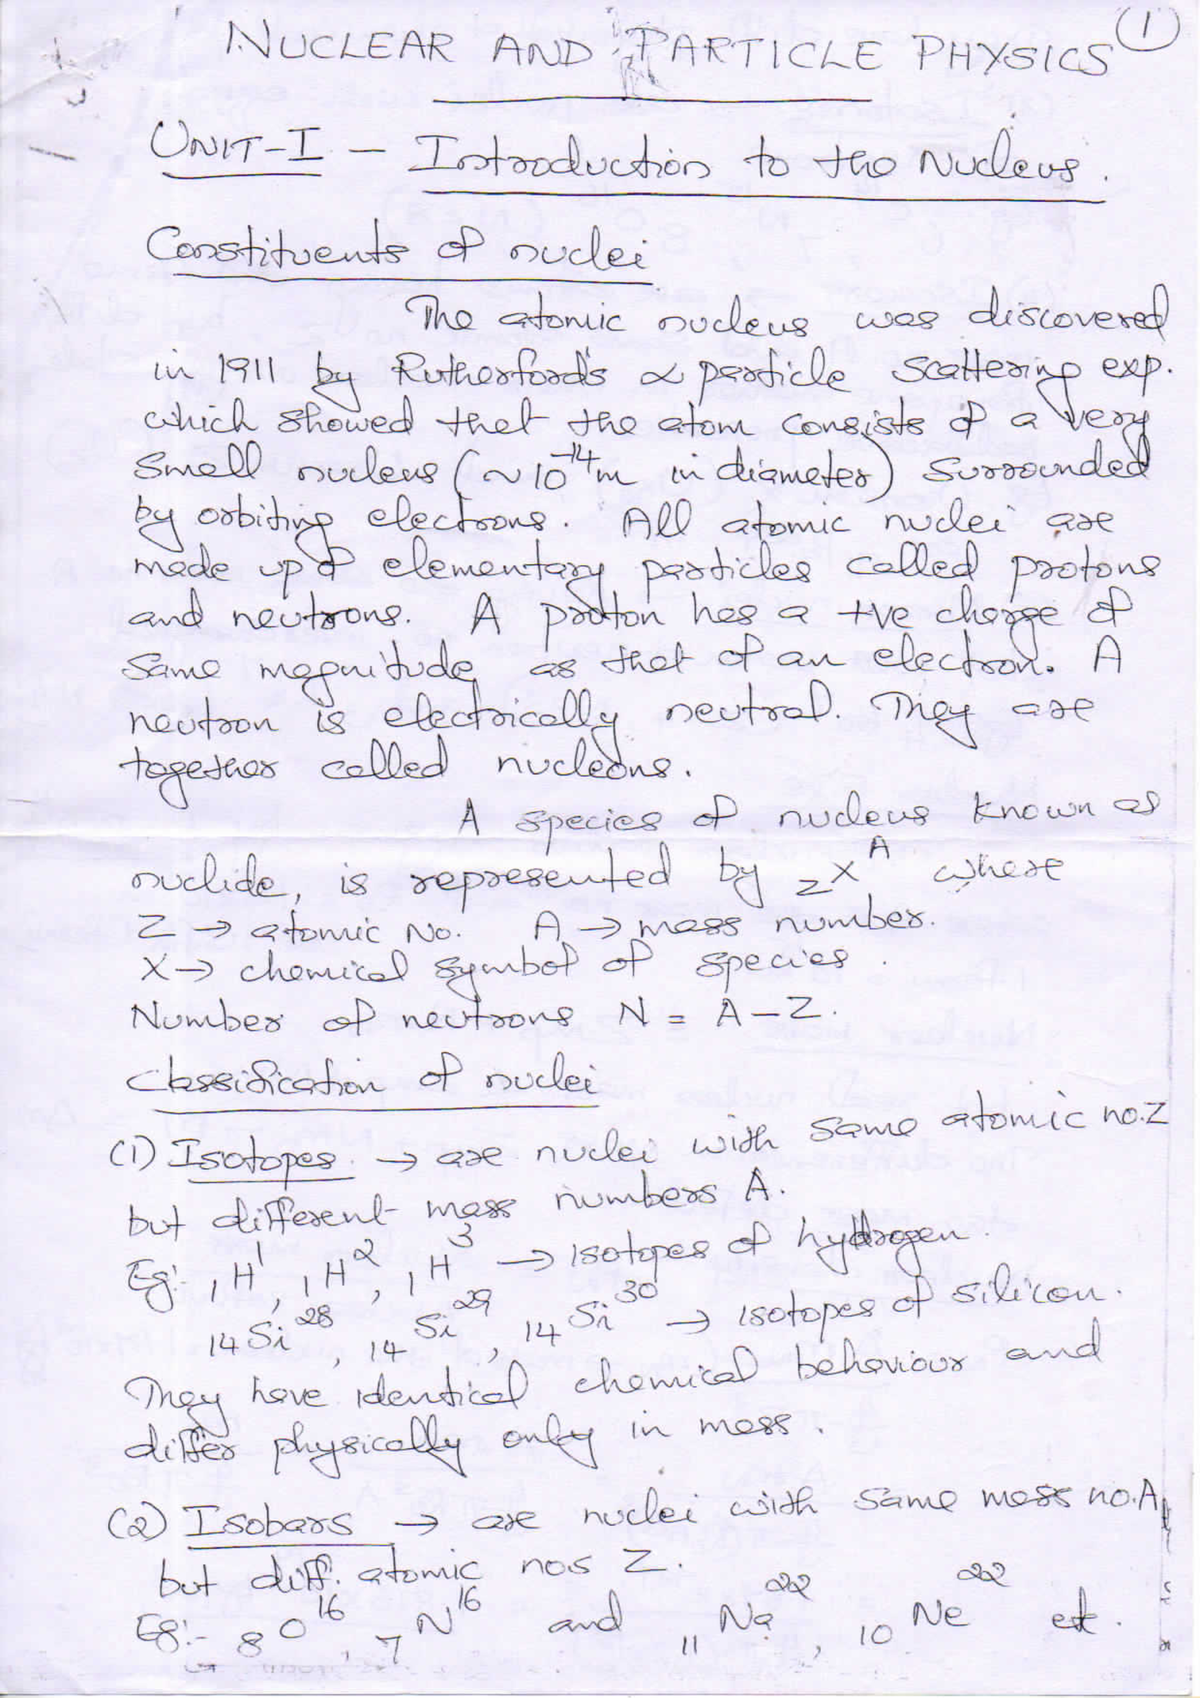 1
NUCLEAR AND PARTICLE PHYSICS
UNIT-I – Introduction to the Nucleus.
Constituents of nuclei
The atomic nucleus was discovered
in 1911 by Rutherford's α particle scattering exp.
which showed that the atom consists of a very
small nucleus (~10⁻¹⁴m in diameter) surrounded
by orbiting electrons. All atomic nuclei are
made up of elementary particles called protons
and neutrons. A proton has a +ve charge of
same magnitude as that of an electron. A
neutron is electrically neutral. They are
together called nucleons.
A species of nucleus known as
nuclide, is represented by ZX^A where
Z → atomic No. A → mass number.
X → chemical symbol of species.
Number of neutrons N = A – Z.
Classification of nuclei
(1) Isotopes → are nuclei with same atomic no.Z
but different mass numbers A.
Eg:- ₁H¹, ₁H², ₁H³ → isotopes of hydrogen.
₁₄Si²⁸, ₁₄Si²⁹, ₁₄Si³⁰ → isotopes of silicon.
They have identical chemical behaviour and
differ physically only in mass.
(2) Isobars → are nuclei with same mass no.A,
but diff. atomic nos Z.
Eg:- ₈O¹⁶, ₇N¹⁶ and ₁₁Na²², ₁₀Ne²² etc.